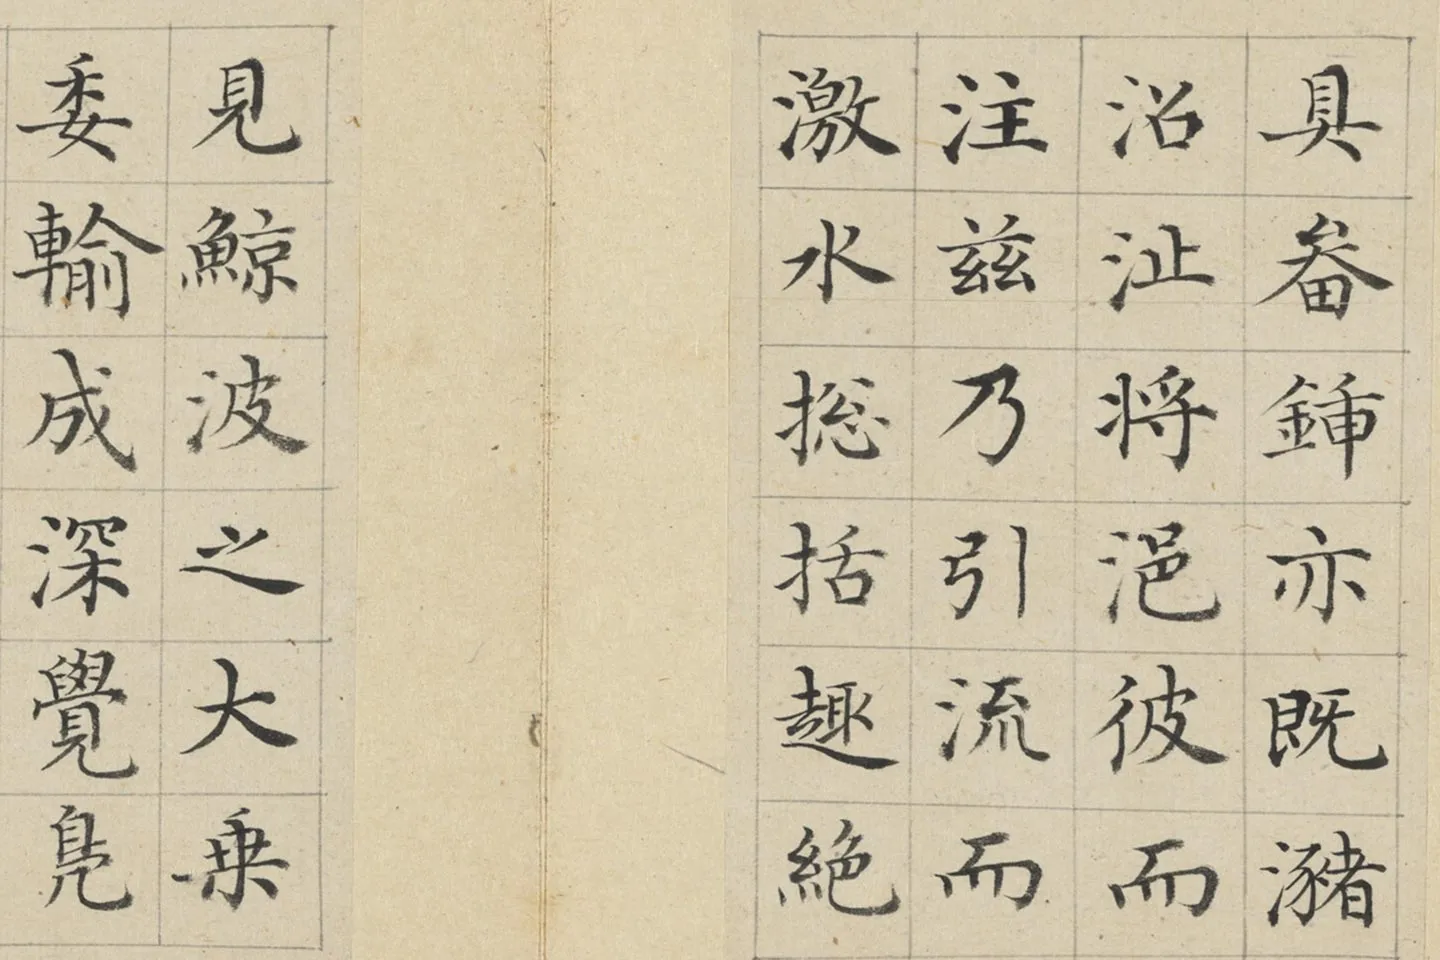 具畚鍤亦既瀦
沼沚将浥彼而
注兹乃引流而
激水揔括趣絶
見鯨波之大乗
委輸成深覺鳧